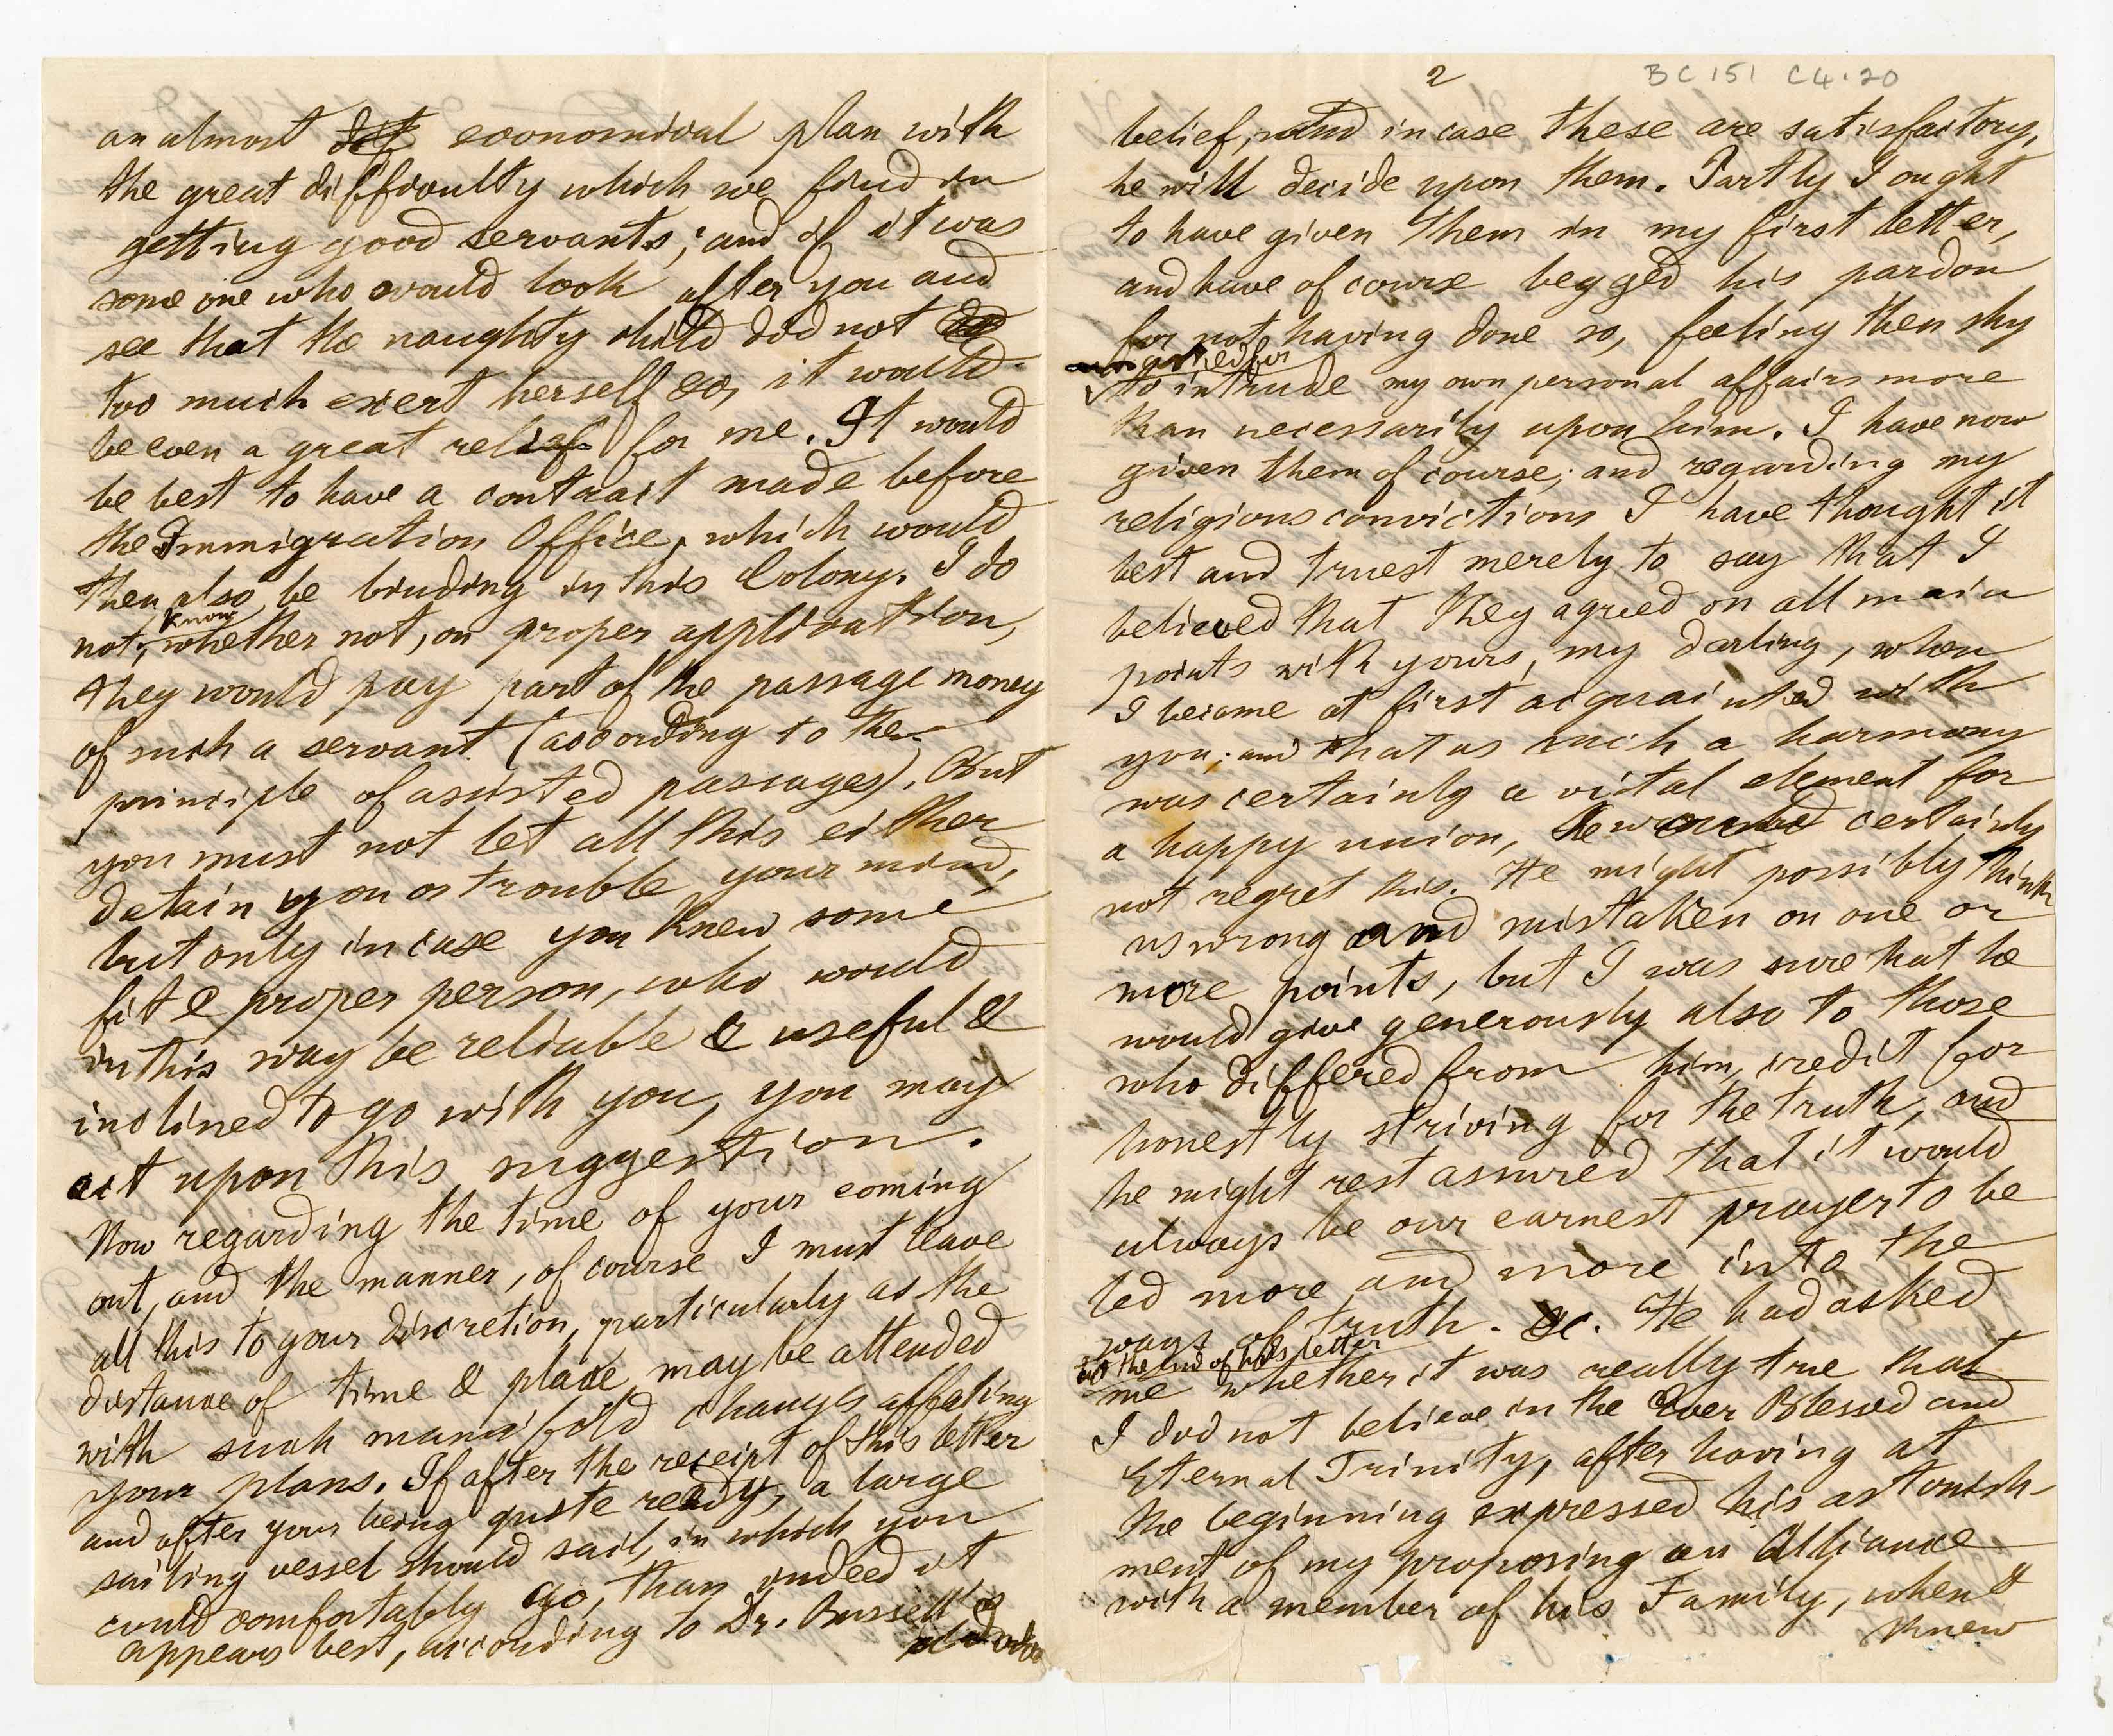 an almost economical plan with
the great difficulty which we find in
getting good servants; and if it was
some one who would look after you and
see that the naughty child did not
too much exert herself &c, it would
be even a great relief for me. It would
be best to have a contract made before
the Immigration Office, which would
then also be binding in this Colony. I do
know
not, whether not, on proper application,
they would pay part of the passage money
of such a servant (according to the
principle of assisted passages). But
you must not let all this either
detain you or trouble your mind,
but only in case you knew some
fit & proper person, who would
in this way be reliable & useful &
inclined to go with you, you may
act upon this suggestion.
Now regarding the time of your coming
out, and the manner, of course I must leave
all this to your discretion, particularly as the
distance of time & place may be attended
with such manifold changes affecting
your plans. If after the receipt of this letter
and after your being quite ready, a large
sailing vessel should sail, in which you
could comfortably go, than indeed it
appears best, according to Dr. Russell's
2
BC 151 C4.20
belief, and in case these are satisfactory,
he will decide upon them. Partly I ought
to have given them in my first letter,
and have of course begged his pardon
for not having done so, feeling then shy
to intrude my own personal affairs more
than necessarily upon him. I have now
given them of course; and regarding my
religious convictions I have thought it
best and truest merely to say that I
believed that they agreed on all main
points with yours, my darling, when
I became at first acquainted with
you; and that as such a harmony
was certainly a vital element for
a happy union, he would certainly
not regret this. He might possibly think
us wrong and mistaken on one or
more points, but I was sure that he
would give generously also to those
who differed from him, credit for
honestly striving for the truth, and
he might rest assured that it would
always be our earnest prayer to be
led more and more into the
ways of truth. &c. He had asked
at the end of his letter
me whether it was really true that
I did not believe in the Ever Blessed and
Eternal Trinity, after having at
the beginning expressed his astonish-
ment of my proposing an Alliance
with a member of his Family, when I
knew